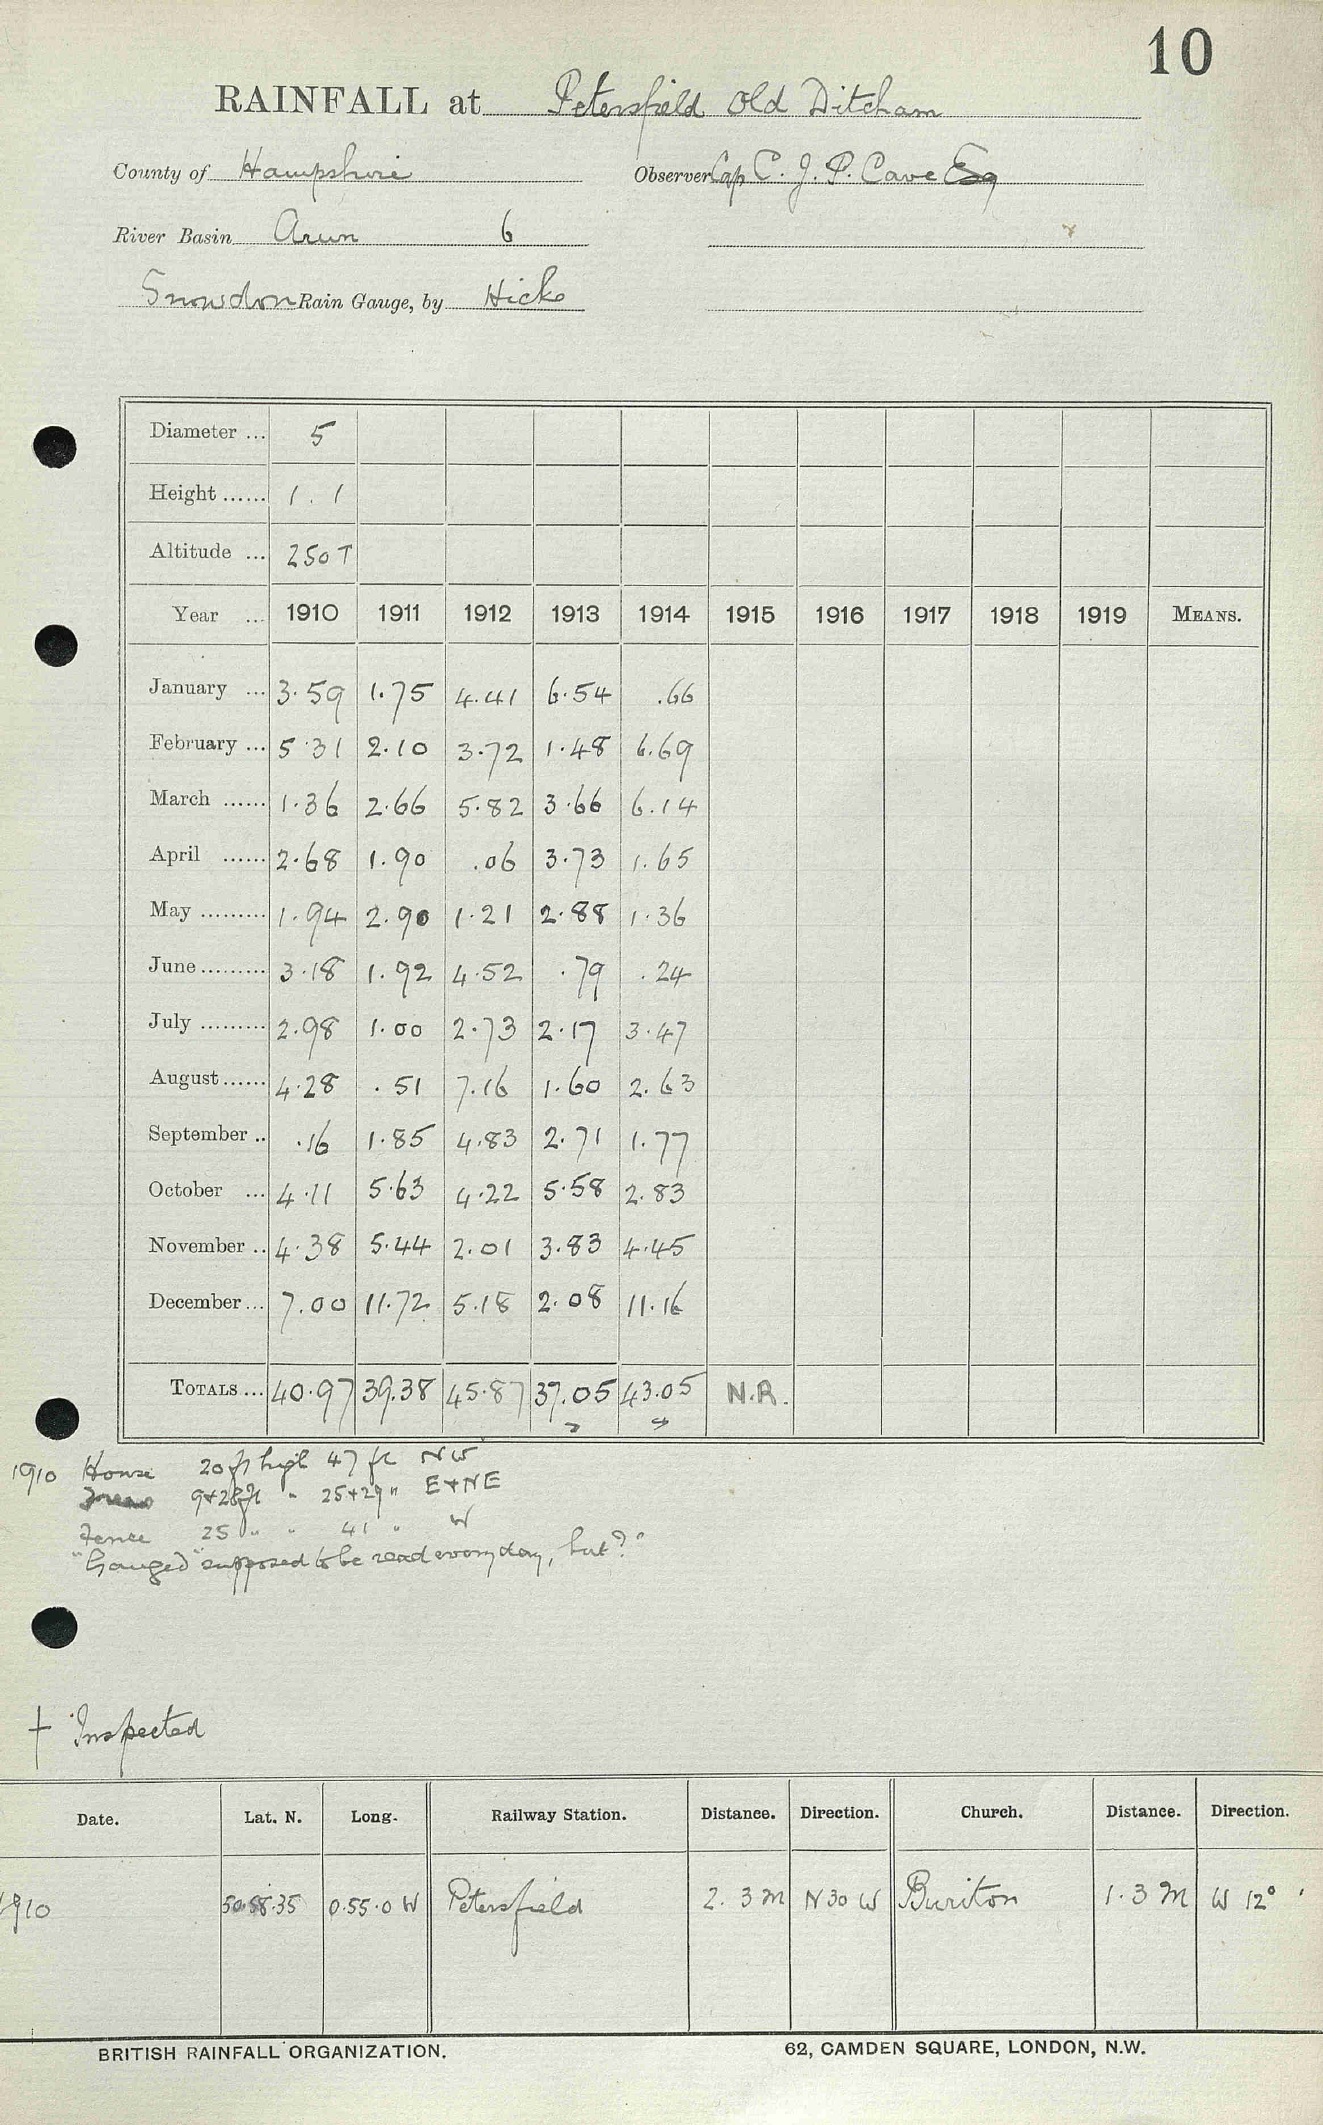 10
RAINFALL at Petersfield Old Ditcham
County of Hampshire Observer Cap C. J. P. Cave Esq
River Basin Arun 6
Snowdon Rain Gauge, by Hicks
Diameter ... 5
Height ...... 1.1
Altitude ... 250 T
Year ... 1910 1911 1912 1913 1914 1915 1916 1917 1918 1919 MEANS.
January ... 3.59 1.75 4.41 6.54 .66
February ... 5.31 2.10 3.72 1.48 6.69
March ...... 1.36 2.66 5.82 3.66 6.14
April ...... 2.68 1.90 .06 3.73 1.65
May ......... 1.94 2.90 1.21 2.88 1.36
June ......... 3.18 1.92 4.52 .79 .24
July ......... 2.98 1.00 2.73 2.17 3.47
August ...... 4.28 .51 7.16 1.60 2.63
September .. .16 1.85 4.83 2.71 1.77
October ... 4.11 5.63 4.22 5.58 2.83
November .. 4.38 5.44 2.01 3.83 4.45
December ... 7.00 11.72 5.18 2.08 11.16
TOTALS ... 40.97 39.38 45.87 37.05 43.05 N.R.
1910 House 20 ft high 47 ft NW
9+28ft " 25+29 " E+NE
Fence 25 " " 41 " W
"Gauged" supposed to be read every day, but?"
† Inspected
Date. Lat. N. Long. Railway Station. Distance. Direction. Church. Distance. Direction.
1910 50.58.35 0.55.0 W Petersfield 2.3 M N 30 W Buriton 1.3 M W 12°
BRITISH RAINFALL ORGANIZATION. 62, CAMDEN SQUARE, LONDON, N.W.